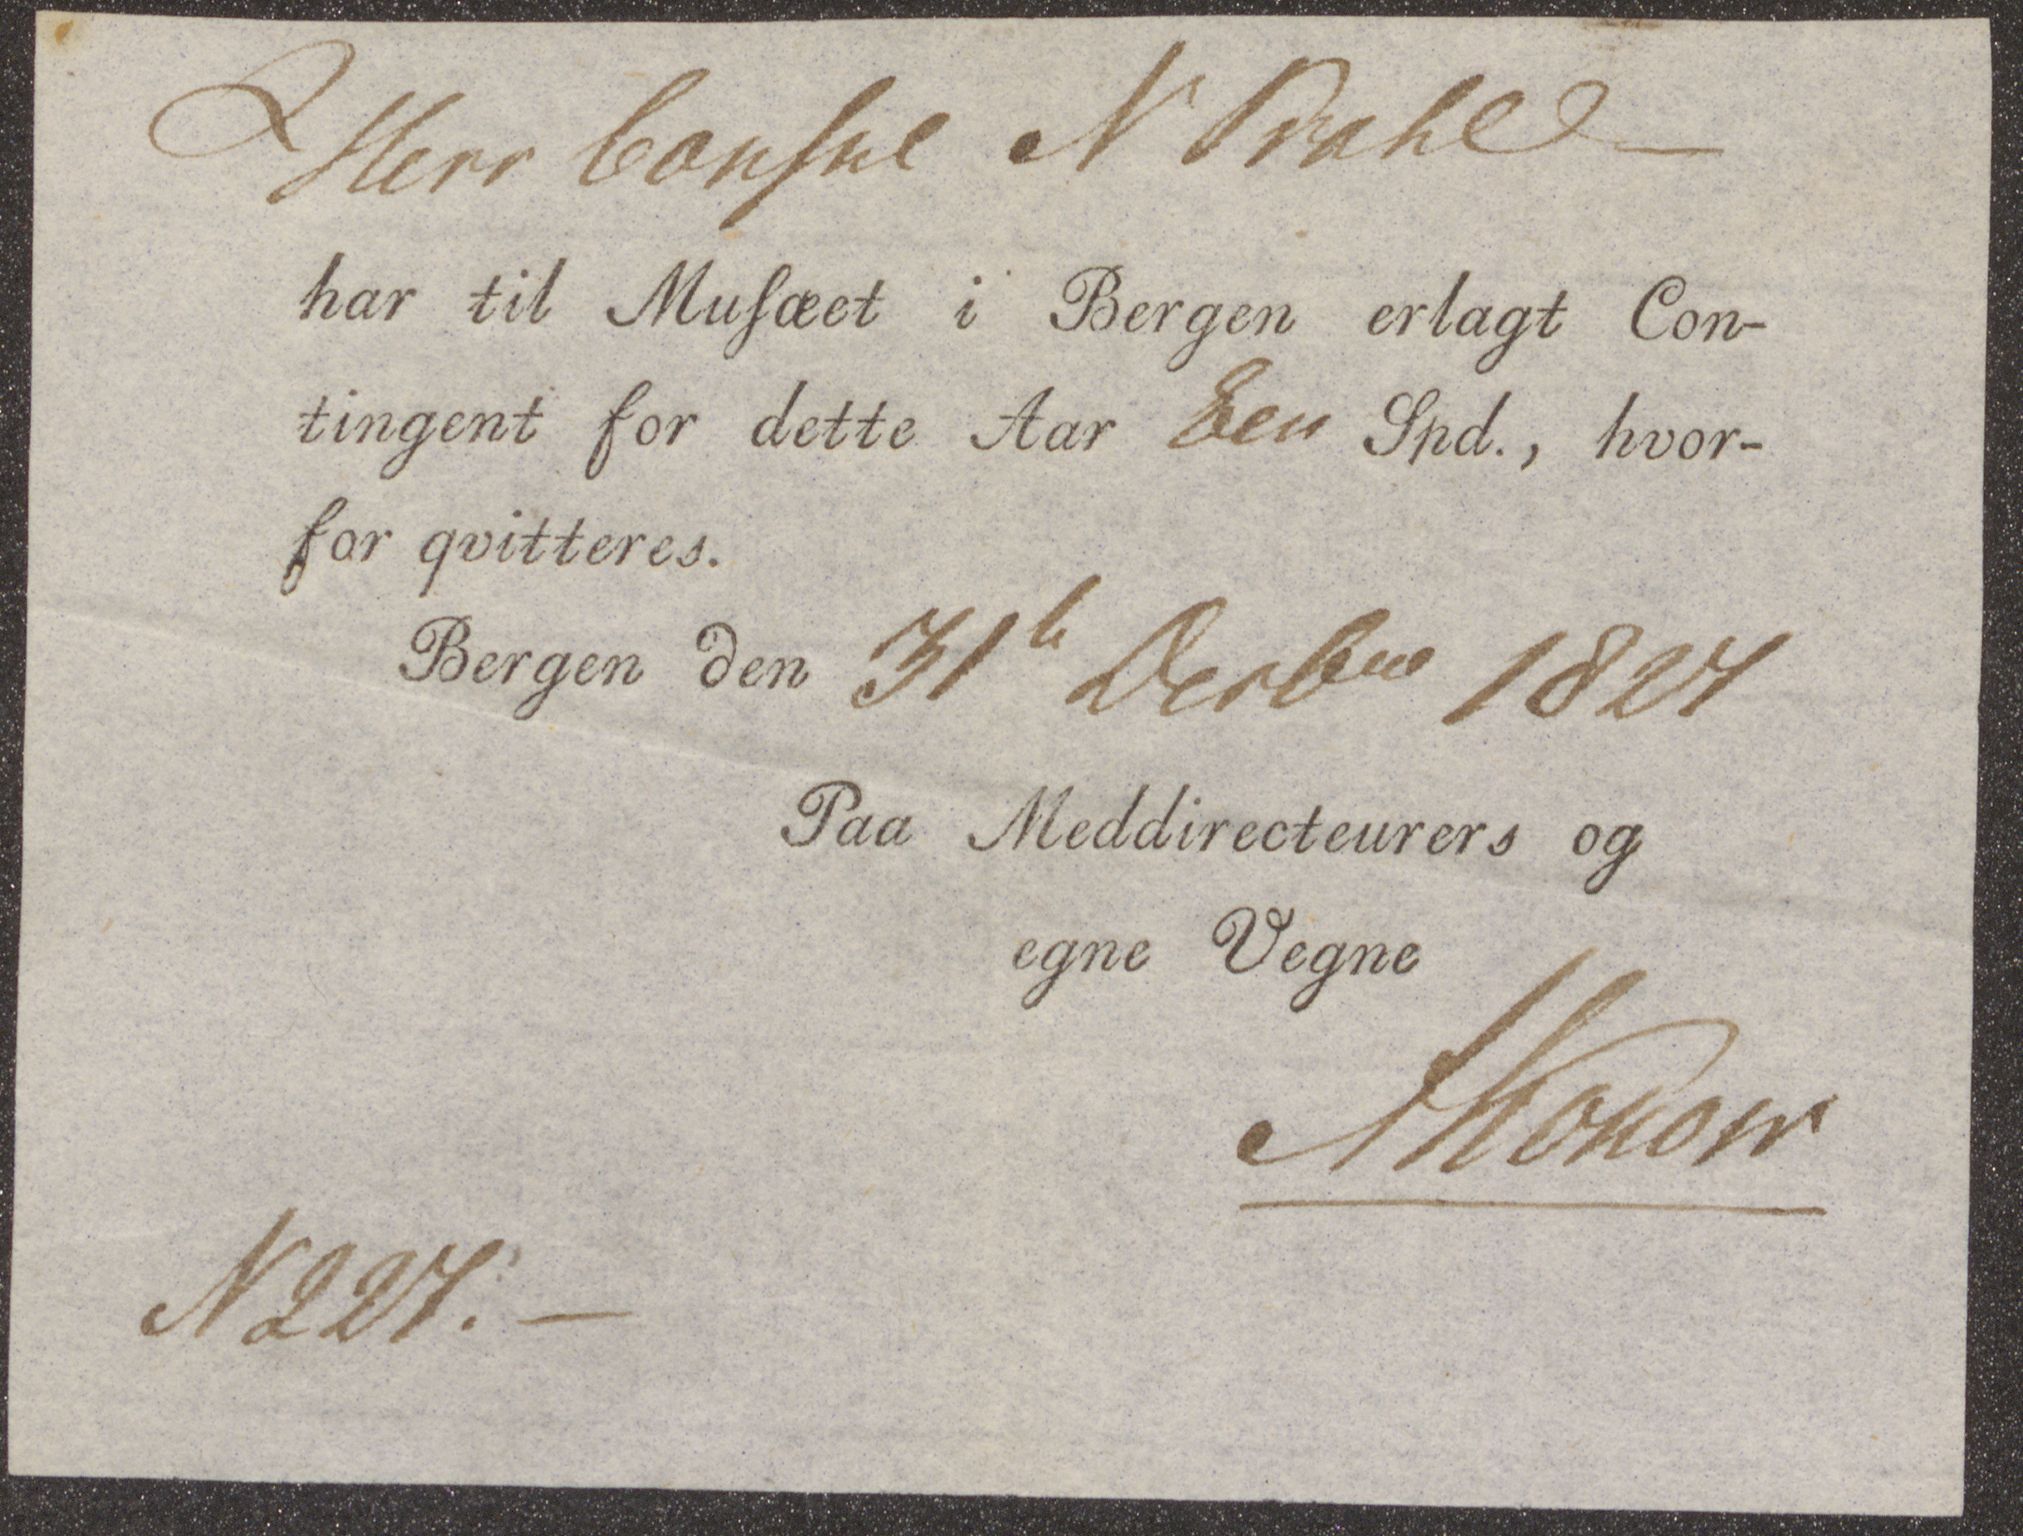 Herr Consul N Prahl
har til Musæet i Bergen erlagt Con-
tingent for dette Aar Een Spd., hvor-
for qvitteres.
Bergen den 31te Decbre 1827
Paa Meddirecteurers og
egne Vegne
AKonow
N 227.—